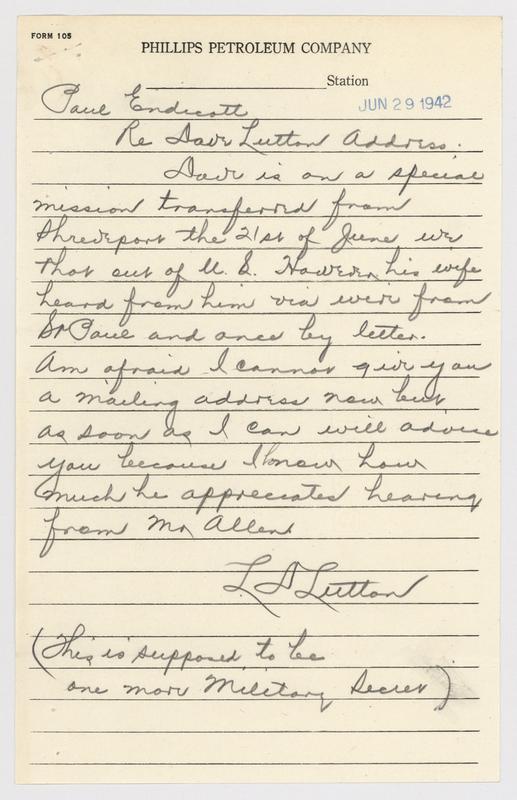 FORM 105
PHILLIPS PETROLEUM COMPANY
Station
JUN 29 1942
Paul Endicott
Re Dave Lutton Address.
Dave is on a special
mission transferred from
Shreveport the 21st of June we
that out of U. S. However his wife
heard from him via wire from
St Paul and once by letter.
Am afraid I cannot give you
a mailing address now but
as soon as I can will advise
you because I know how
much he appreciates hearing
from Mr Allen
L S Lutton
(This is supposed to be
one more Military Secret)